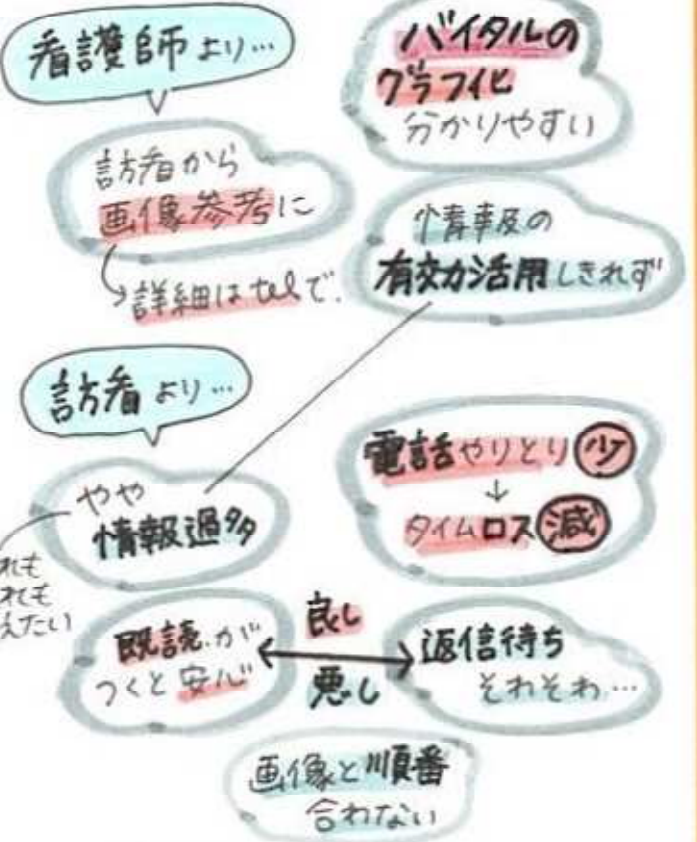 看護師より…
バイタルの
グラフ化
分かりやすい
訪看から
画像参考に
詳細はtelで.
情報の
有効活用しきれず
訪看より…
やや
情報過多
れも
れも
えたい
電話やりとり少
↓
タイムロス減
既読がつ
つくと安心
良し
悪し
返信待ち
そわそわ…
画像と順番
合わない